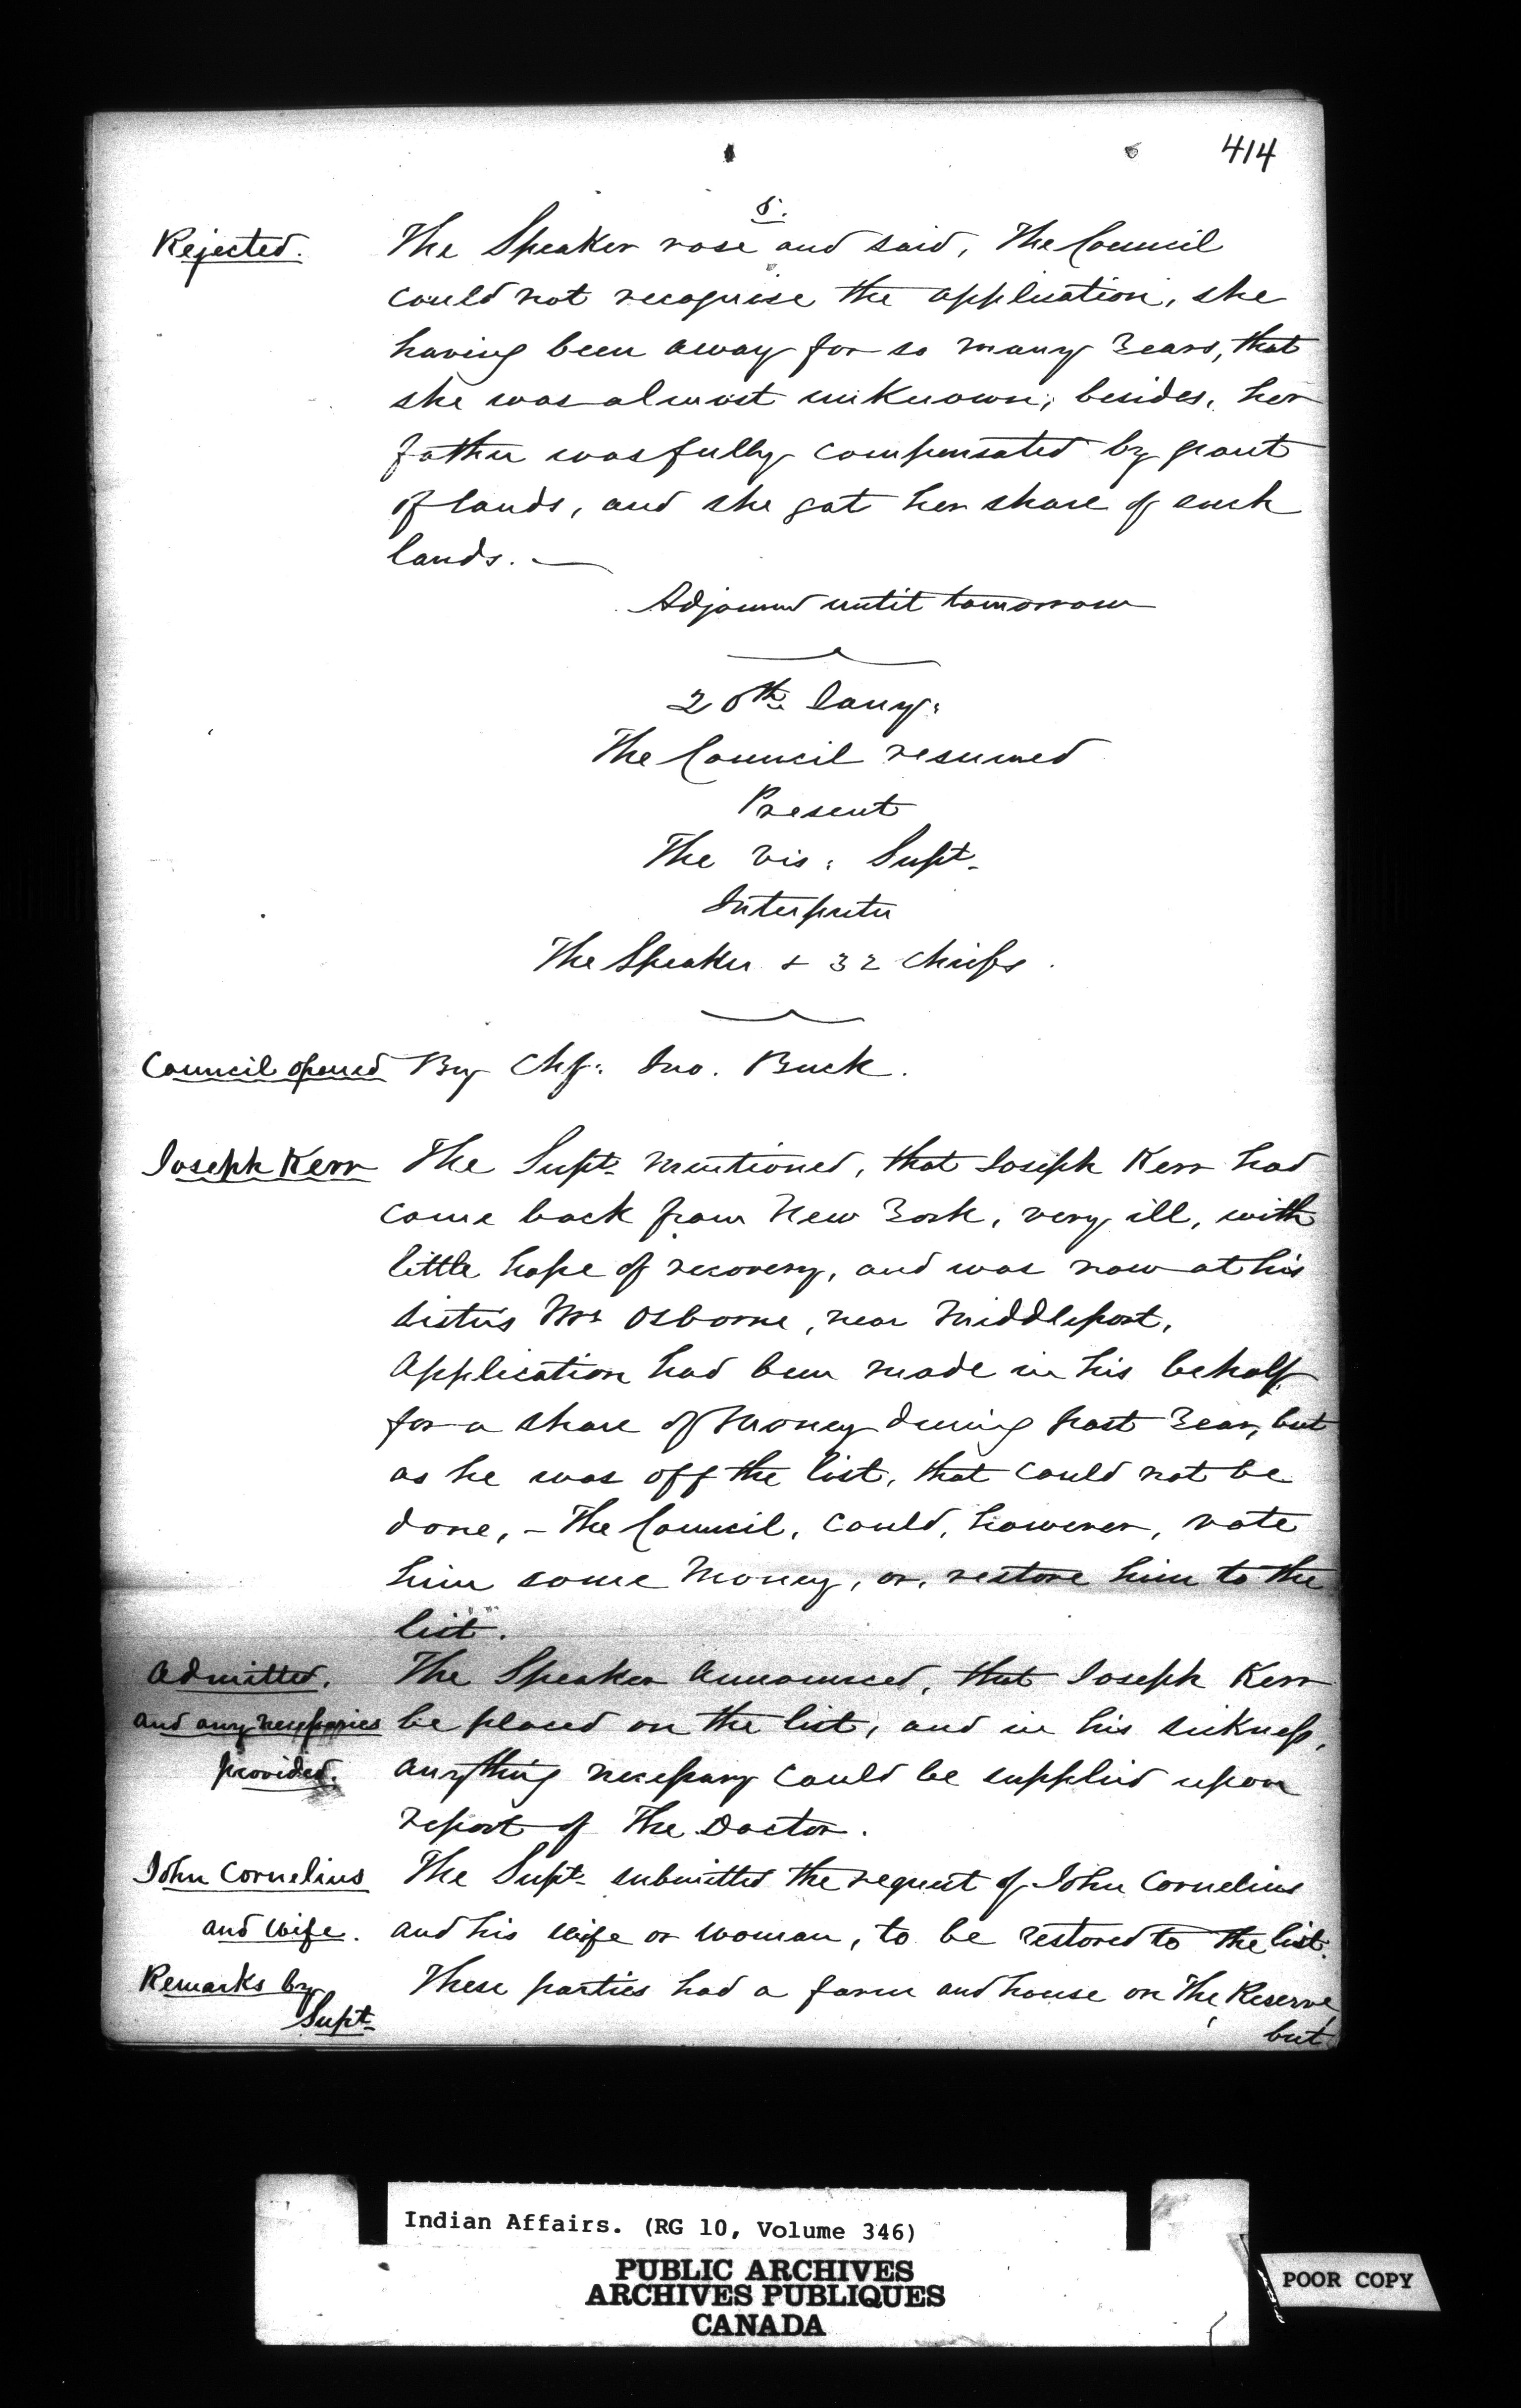 414
8.
Rejected. The Speaker rose and said, The Council
could not recognise the application, she
having been away for so many Years, that
she was almost unknown; besides, her
father was fully compensated by grant
of lands, and she got her share of such
lands. —
Adjourned until tomorrow
20th Jany:
The Council resumed
Present
The Vis: Supt.
Interpreter
The Speaker & 32 Chiefs.
Council opened By Chf: Jno. Buck.
Joseph Kerr The Supt. mentioned, that Joseph Kerr had
come back from New York, very ill, with
little hope of recovery, and was now at his
sister's Mrs Osborne, near Middleport.
Application had been made in his behalf
for a share of Money during past Year, but
as he was off the list, that could not be
done, – The Council, could, however, vote
him some Money, or, restore him to the
list.
Admitted. The Speaker announced, that Joseph Kerr
and any necessaries be placed on the list, and in his sickness,
provided. anything necessary could be supplied upon
report of The Doctor.
John Cornelius The Supt. submitted the request of John Cornelius
and Wife. and his Wife or Woman, to be restored to the list.
Remarks by These parties had a farm and house on The Reserve,
Supt.
but
Indian Affairs. (RG 10, Volume 346)
PUBLIC ARCHIVES
ARCHIVES PUBLIQUES
CANADA
POOR COPY